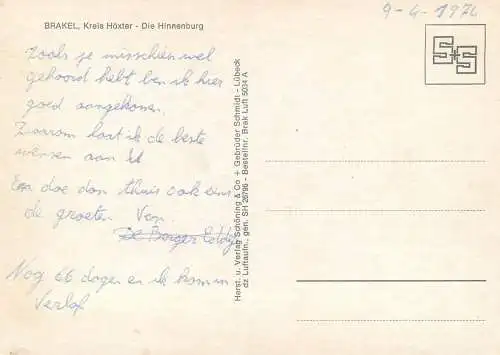 BRAKEL, Kreis Höxter - Die Hinnenburg
9-4-1974
S+S
Zoals je misschien wel
gehoord hebt ben ik hier
goed aangekomen.
Daarom laat ik de beste
wensen aan
En doe dan thuis ook eens
de groeten Van
De Borger Eddy
Nog 66 dagen en ik kom in
Verlof
Herst. u. Verlag Schöning & Co + Gebrüder Schmidt - Lübeck
dz Luftaufn., gen. SH 26/96 - Bestellnr. Brak Luft 5034 A